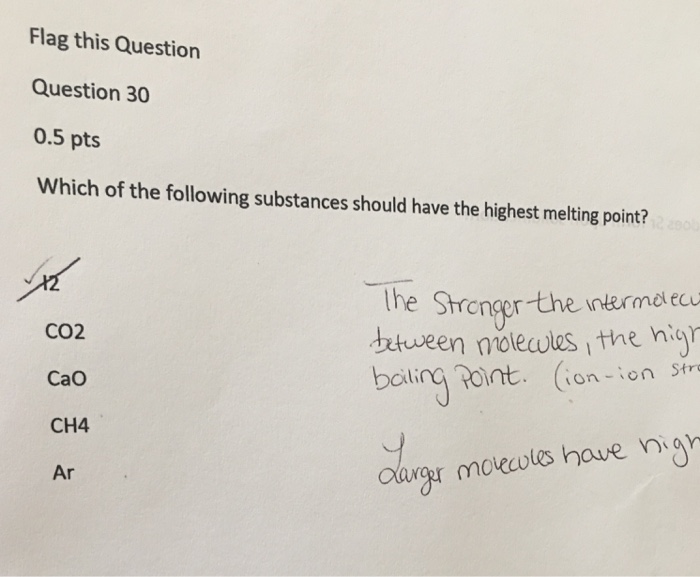 Flag this Question
Question 30
0.5 pts
Which of the following substances should have the highest melting point?
CO2
CaO
CH4
Ar
The Stronger the intermolecu
between molecules, the high
boiling Point. (ion-ion stro
Larger molecules have high